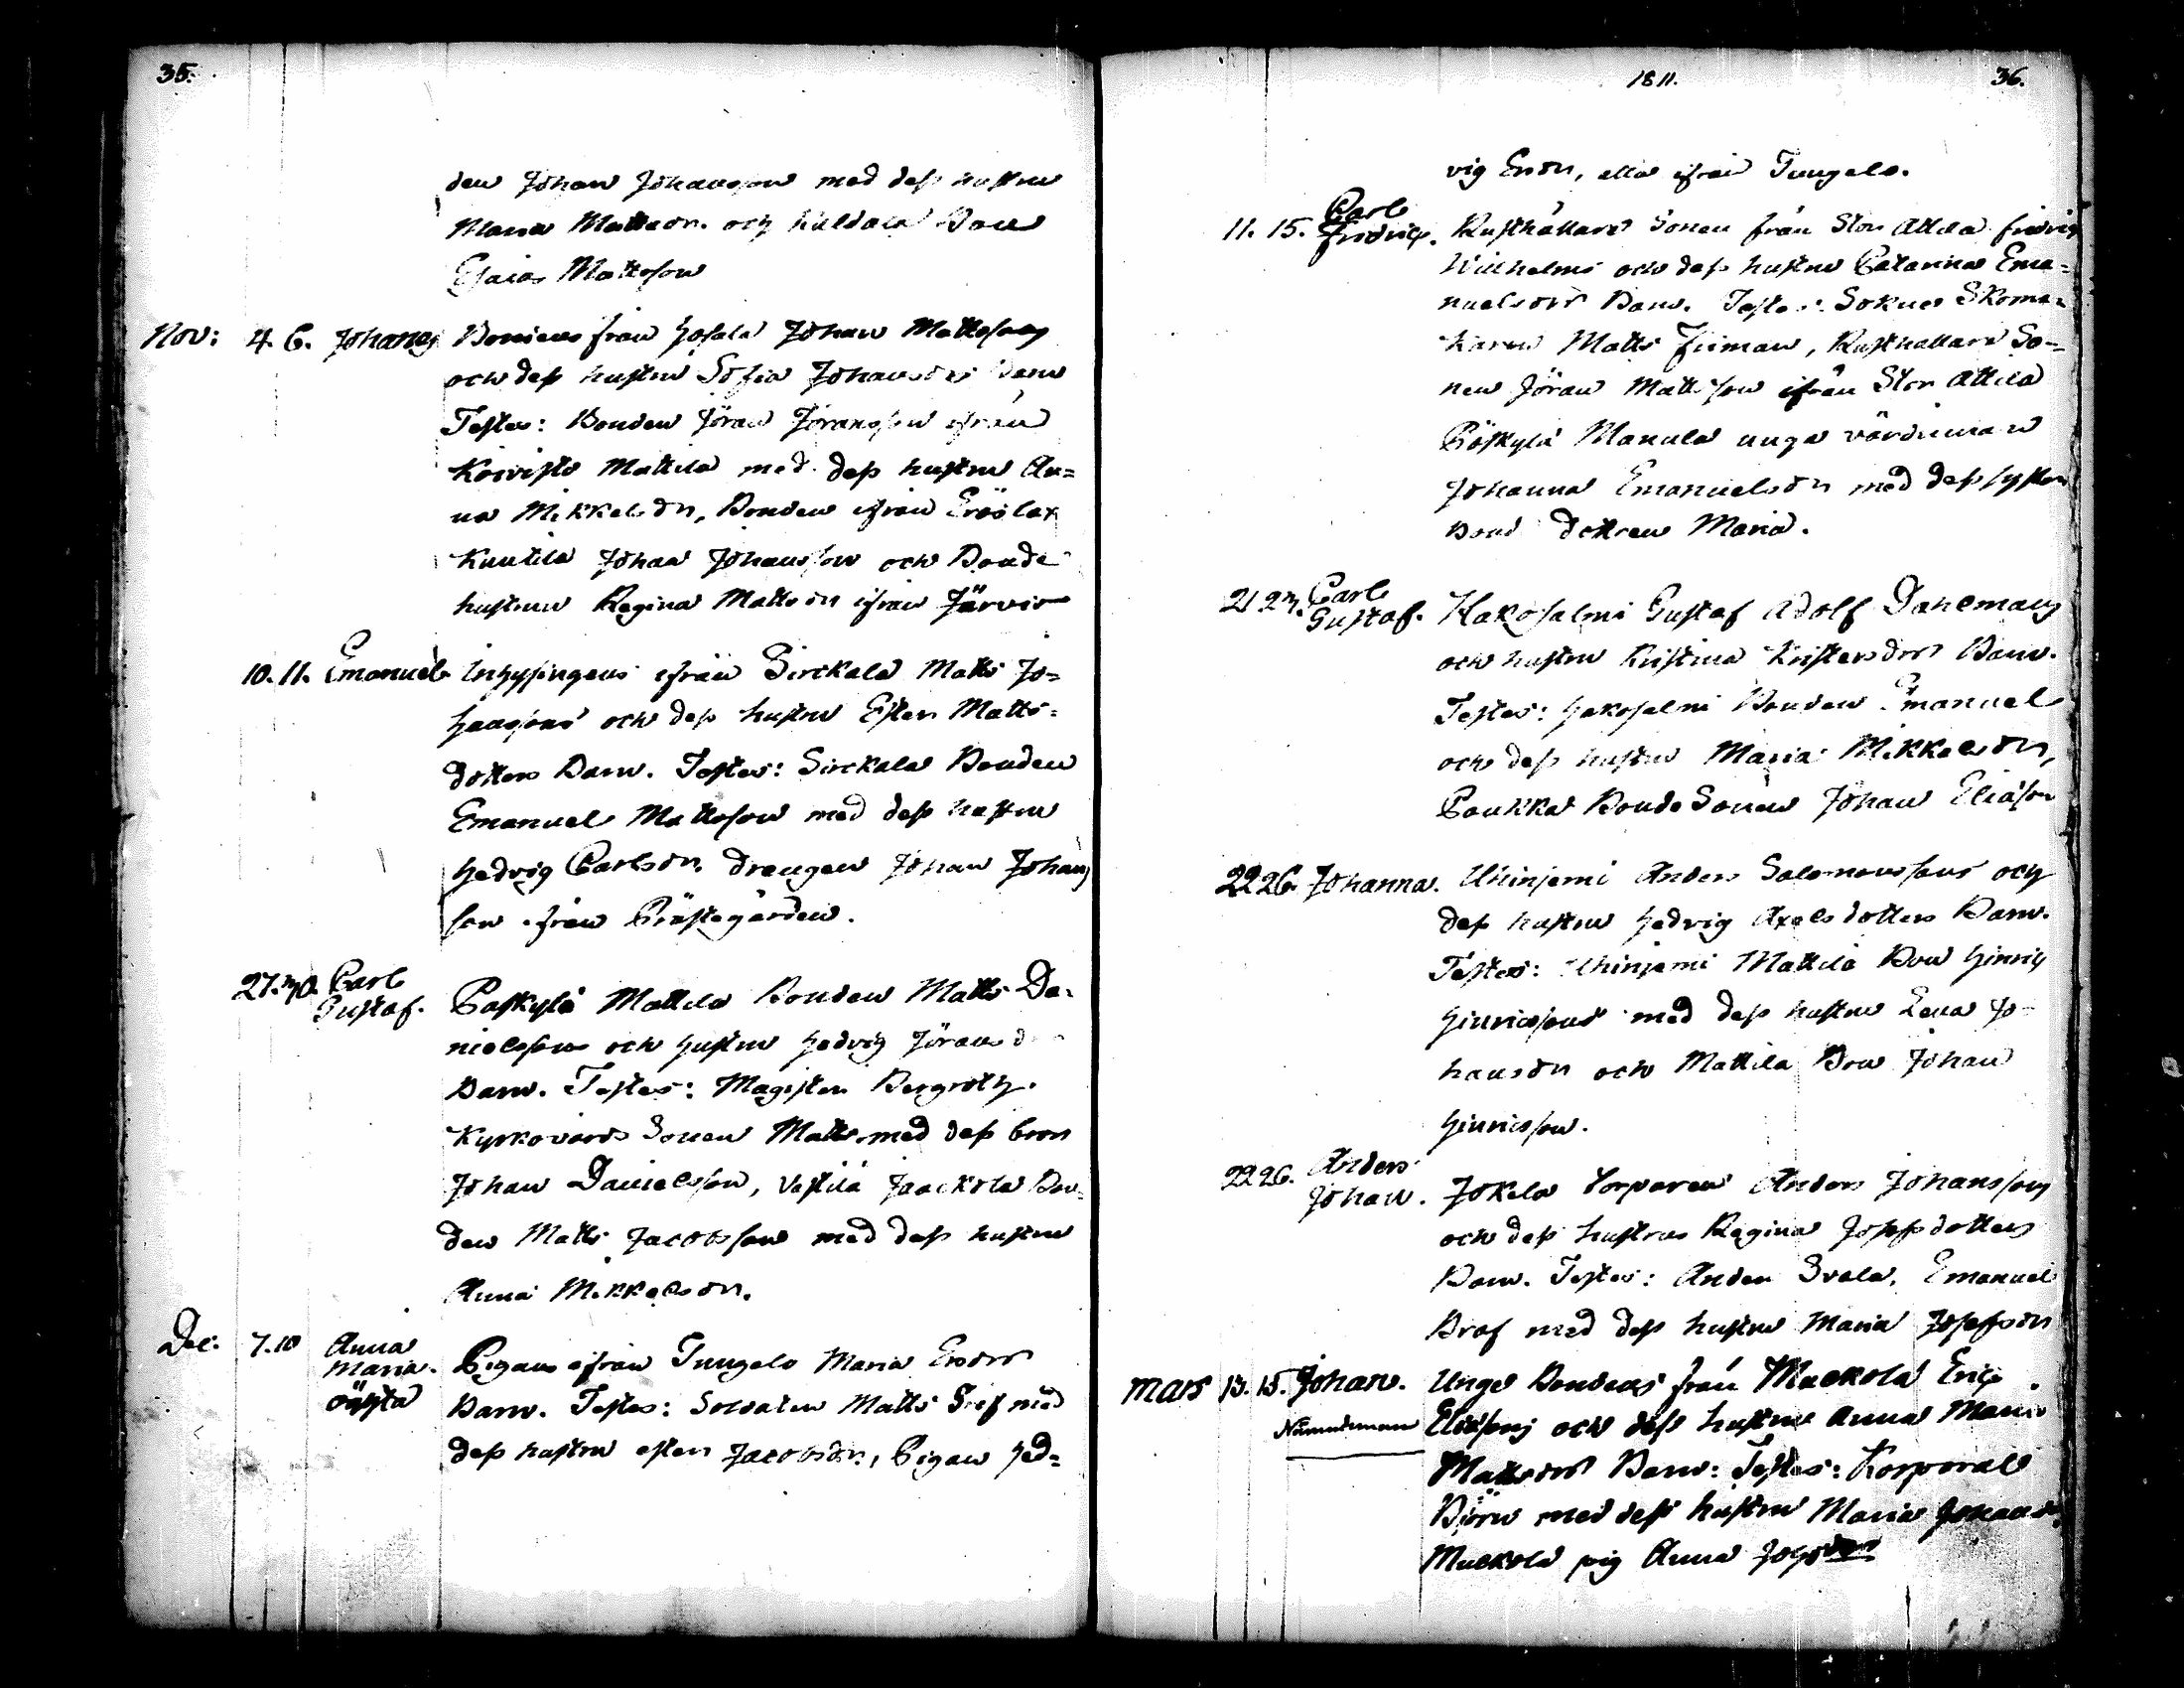 35.
den Johan Johansson med dess hustru
Maria Mattsdr. och Kuldala Bon
Esaias Mattsson
Nov: 4. 6. Johan Bondens från Johan Mattssons
och dess hustru Sofia Johansdrs Barn
Testes: Bonden Jöran Jöransson ifrån
Koivisto Mattila med dess hustru An=
na Mikkelsdr, Bonden ifrån
Knutila Johan Johansson och Bonde
hustrun Regina Mattsdr ifrån Järvis
10. 11. Emanuel Inhysingens ifrån Sirckala Matts Jo=
hanssons och dess hustru Ester Matts=
dotters Barn. Testes: Sirckala Bonden
Emanuel Mattsson med dess hustru
Hedvig Carlsdr. Drengen Johan Johans
son ifrån Prästegården.
27. 30. Carl
Gustaf. Paskylä Mattila Bonden Matts Da=
nielssons och hustru Hedvig Jörans d
Barn. Testes: Magister Bergroth.
Kyrkovärds Sonen Matts med dess bror
Johan Danielsson, Vestilä Jaackola Bon=
den Matts Jacobsson med dess hustru
Anna Mikkelsdr.
Dec. 7. 10 Anna
Maria.
oäkta Pigans ifrån Tungelo Maria Ersdrs
Barn. Testes: Soldaten Matts Gref med
dess hustru Ester Jacobsdr, Pigan Hed=
1811. 36.
vig Ersdr, alla ifrån Tungelo.
11. 15. Carl
Fredric. Rusthållare Sonen från Stor Attila Fredric
Wilhelms och dess hustru Catarina Ema=
nuelsdrs Barn. Testes: Sokne Skoma=
karen Matts Firman, Rusthållare So=
nen Jöran Mattsson ifrån Stor Attila
Manula unga värdinnan
Johanna Emanuelsdr med dess syster
Bond dottren Maria.
21 23. Carl
Gustaf. Hakosalmi Gustaf Adolf Daneman
och hustru Kristina Kristersdrs Barn.
Testes: Hakosalmi Bonden Emanuel
och dess hustru Maria Mikkelsdr,
Paukka Bonde Sonen Johan Eliasson
22 26. Johanna. Uhinjemi Anders Salomonssons och
dess hustru Hedvig Axelsdotters Barn.
Testes: Uhinjemi Mattila Bon Hinric
Hinricssons med dess hustru Lena Jo=
hansdr och Mattila Bon Johan
Hinricsson.
22 26. Anders
Johan. Jokela Torparen Anders Johanssons
och dess hustrus Regina Josefsdotters
Barn. Testes: Anders Svala, Emanuel
Brof med dess hustru Maria Josefsdr
Mars 13. 15. Johan. Unge Bondens från Muckola Eric
Nämndeman Eliassons och dess hustru Anna Maria
Mattsdrs Barn: Testes: Korporal
Björn med dess hustru Maria Johansd.
Muckola pig Anna